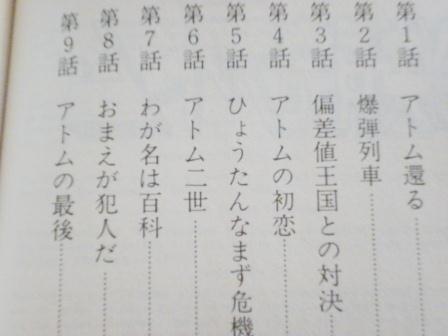 第1話 アトム還る
第2話 爆弾列車
第3話 偏差値王国との対決
第4話 アトムの初恋
第5話 ひょうたんなまず危機
第6話 アトム二世
第7話 わが名は百科
第8話 おまえが犯人だ
第9話 アトムの最後